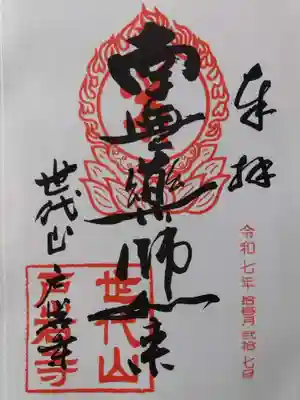 奉拝
令和七年拾壹月弍拾七日
南無薬師如来
世代山
戸岩寺
世代山
戸岩寺